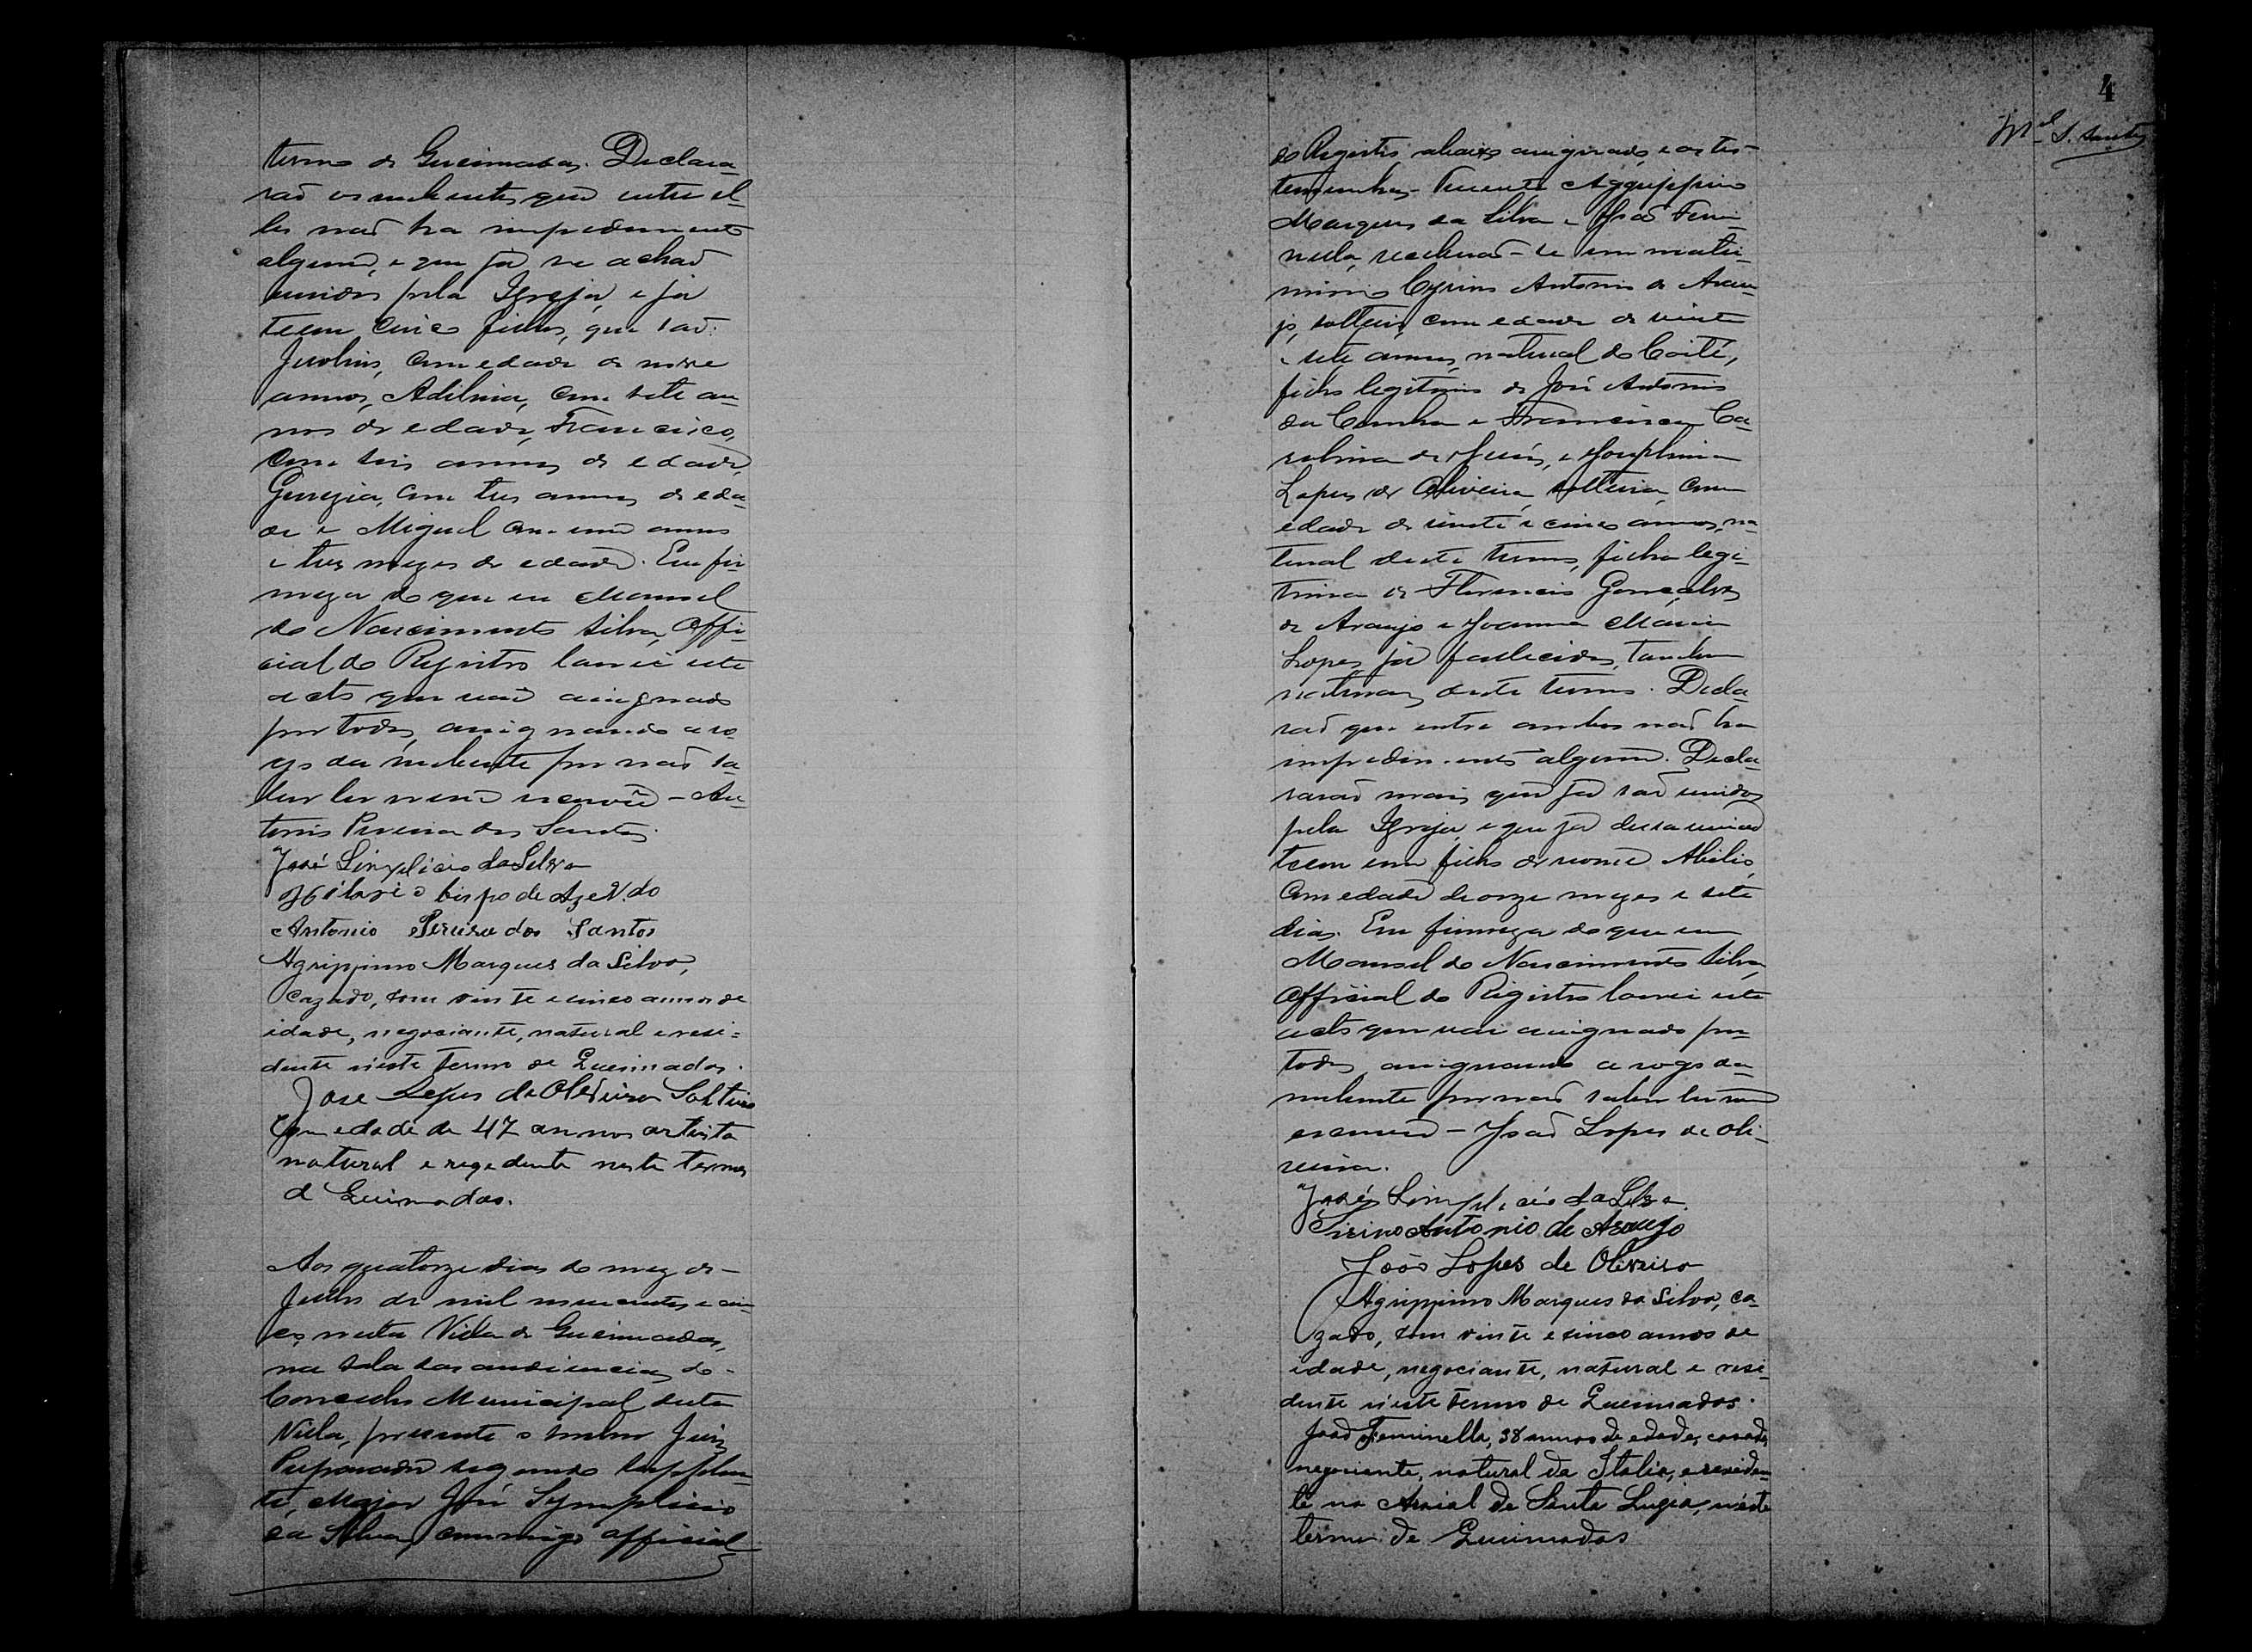 termo de Queimadas. Declara-
raõ os nubentes que entre el-
les naõ ha impedimento
algum, e que já se achaõ
unidos pela Igreja, e já
teem cinco filhos, que saõ:
com edade de nove
annos, Adelina, com sete an-
nos de edade, Francisco,
com seis annos de edade,
com tres annos de eda-
de e Miguel com um anno
e tres mezes de edade. Em fir-
meza do que eu Manoel
do Nascimento Silva, Offi-
cial do Registro lavrei este
acto que vae assignado
por todos, assignando a ro-
go da nubente por naõ sa-
ber ler nem escrever – An-
tonio Pereira dos Santos.
José Simplicio da Silva
Hilario Bispo de Azevedo
Antonio Pereira dos Santos
Agrippino Marques da Silva,
cazado, com vinte e cinco annos de
idade, negociante, natural e resi-
dente n'este termo de Queimadas.
Jose Lopes de Oliveira Solteiro
Com edade de 47 annos artista
natural e rezedente neste termo
de Queimadas.
Aos quatorze dias do mez de
Julho de mil novecentos e cin-
co, nesta Villa de Queimadas,
na sala das audiencias do
Concelho Municipal desta
Villa, presente o senhor Juiz
Preparador segundo supplen-
te, Major José Symplicio
da Silva, commigo official
4
Mel S. Santos
do Registro, abaixo assignado, e as tes-
temunhas – Agrippino
Marques da Silva e Joaõ Femi-
nella, receberaõ-se em matri-
monio Cyrino Antonio de Arau-
jo, solteiro, com edade de vinte
e sete annos, natural do Coité,
filho legitimo de José Antonio
da Cunha e Francisca Ca-
rolina de Jesus, e Josephina
Lopes de Oliveira, solteira, com
edade de vinte e cinco annos, na-
tural deste termo, filha legi-
tima de Florencio Gonçalves
de Araujo e Joanna Maria
Lopes, já fallecidos, tambem
naturaes deste termo. Decla-
raõ que entre ambos naõ ha
impedimento algum. Decla-
raraõ mais que já saõ unidos
pela Igreja, e que já dessa uniaõ
teem um filho de nome Abilio,
com edade de onze mezes e sete
dias. Em firmeza do que eu
Manoel do Nascimento Silva,
Official do Registro lavrei este
acto que vai assignado por
todos, assignando a rogo da
nubente por naõ saber ler nem
escrever – Joaõ Lopes de Oli-
veira.
José Simplicio da Silva
Sirino Antonio de Araujo
João Lopes de Oliveira
Agrippino Marques da Silva, ca-
zado, com vinte e cinco annos de
idade, negociante, natural e resi-
dente n'este termo de Queimadas.
Joaõ Feminella, 38 annos de edade, casado,
negociante, natural da Italia, e residen-
te no Arraial de Santa Luzia, n'este
termo de Queimadas